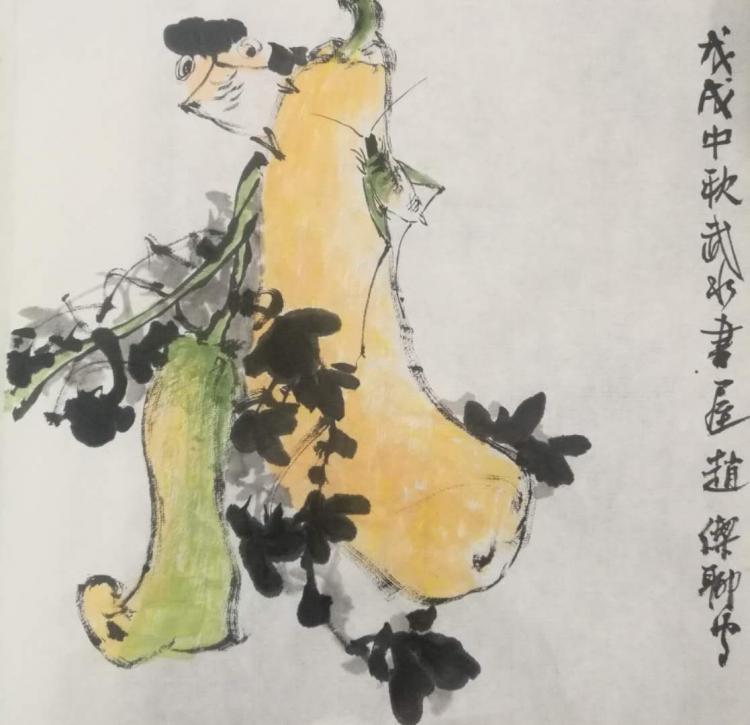 戊戌中秋武水書屋趙傑聊寫